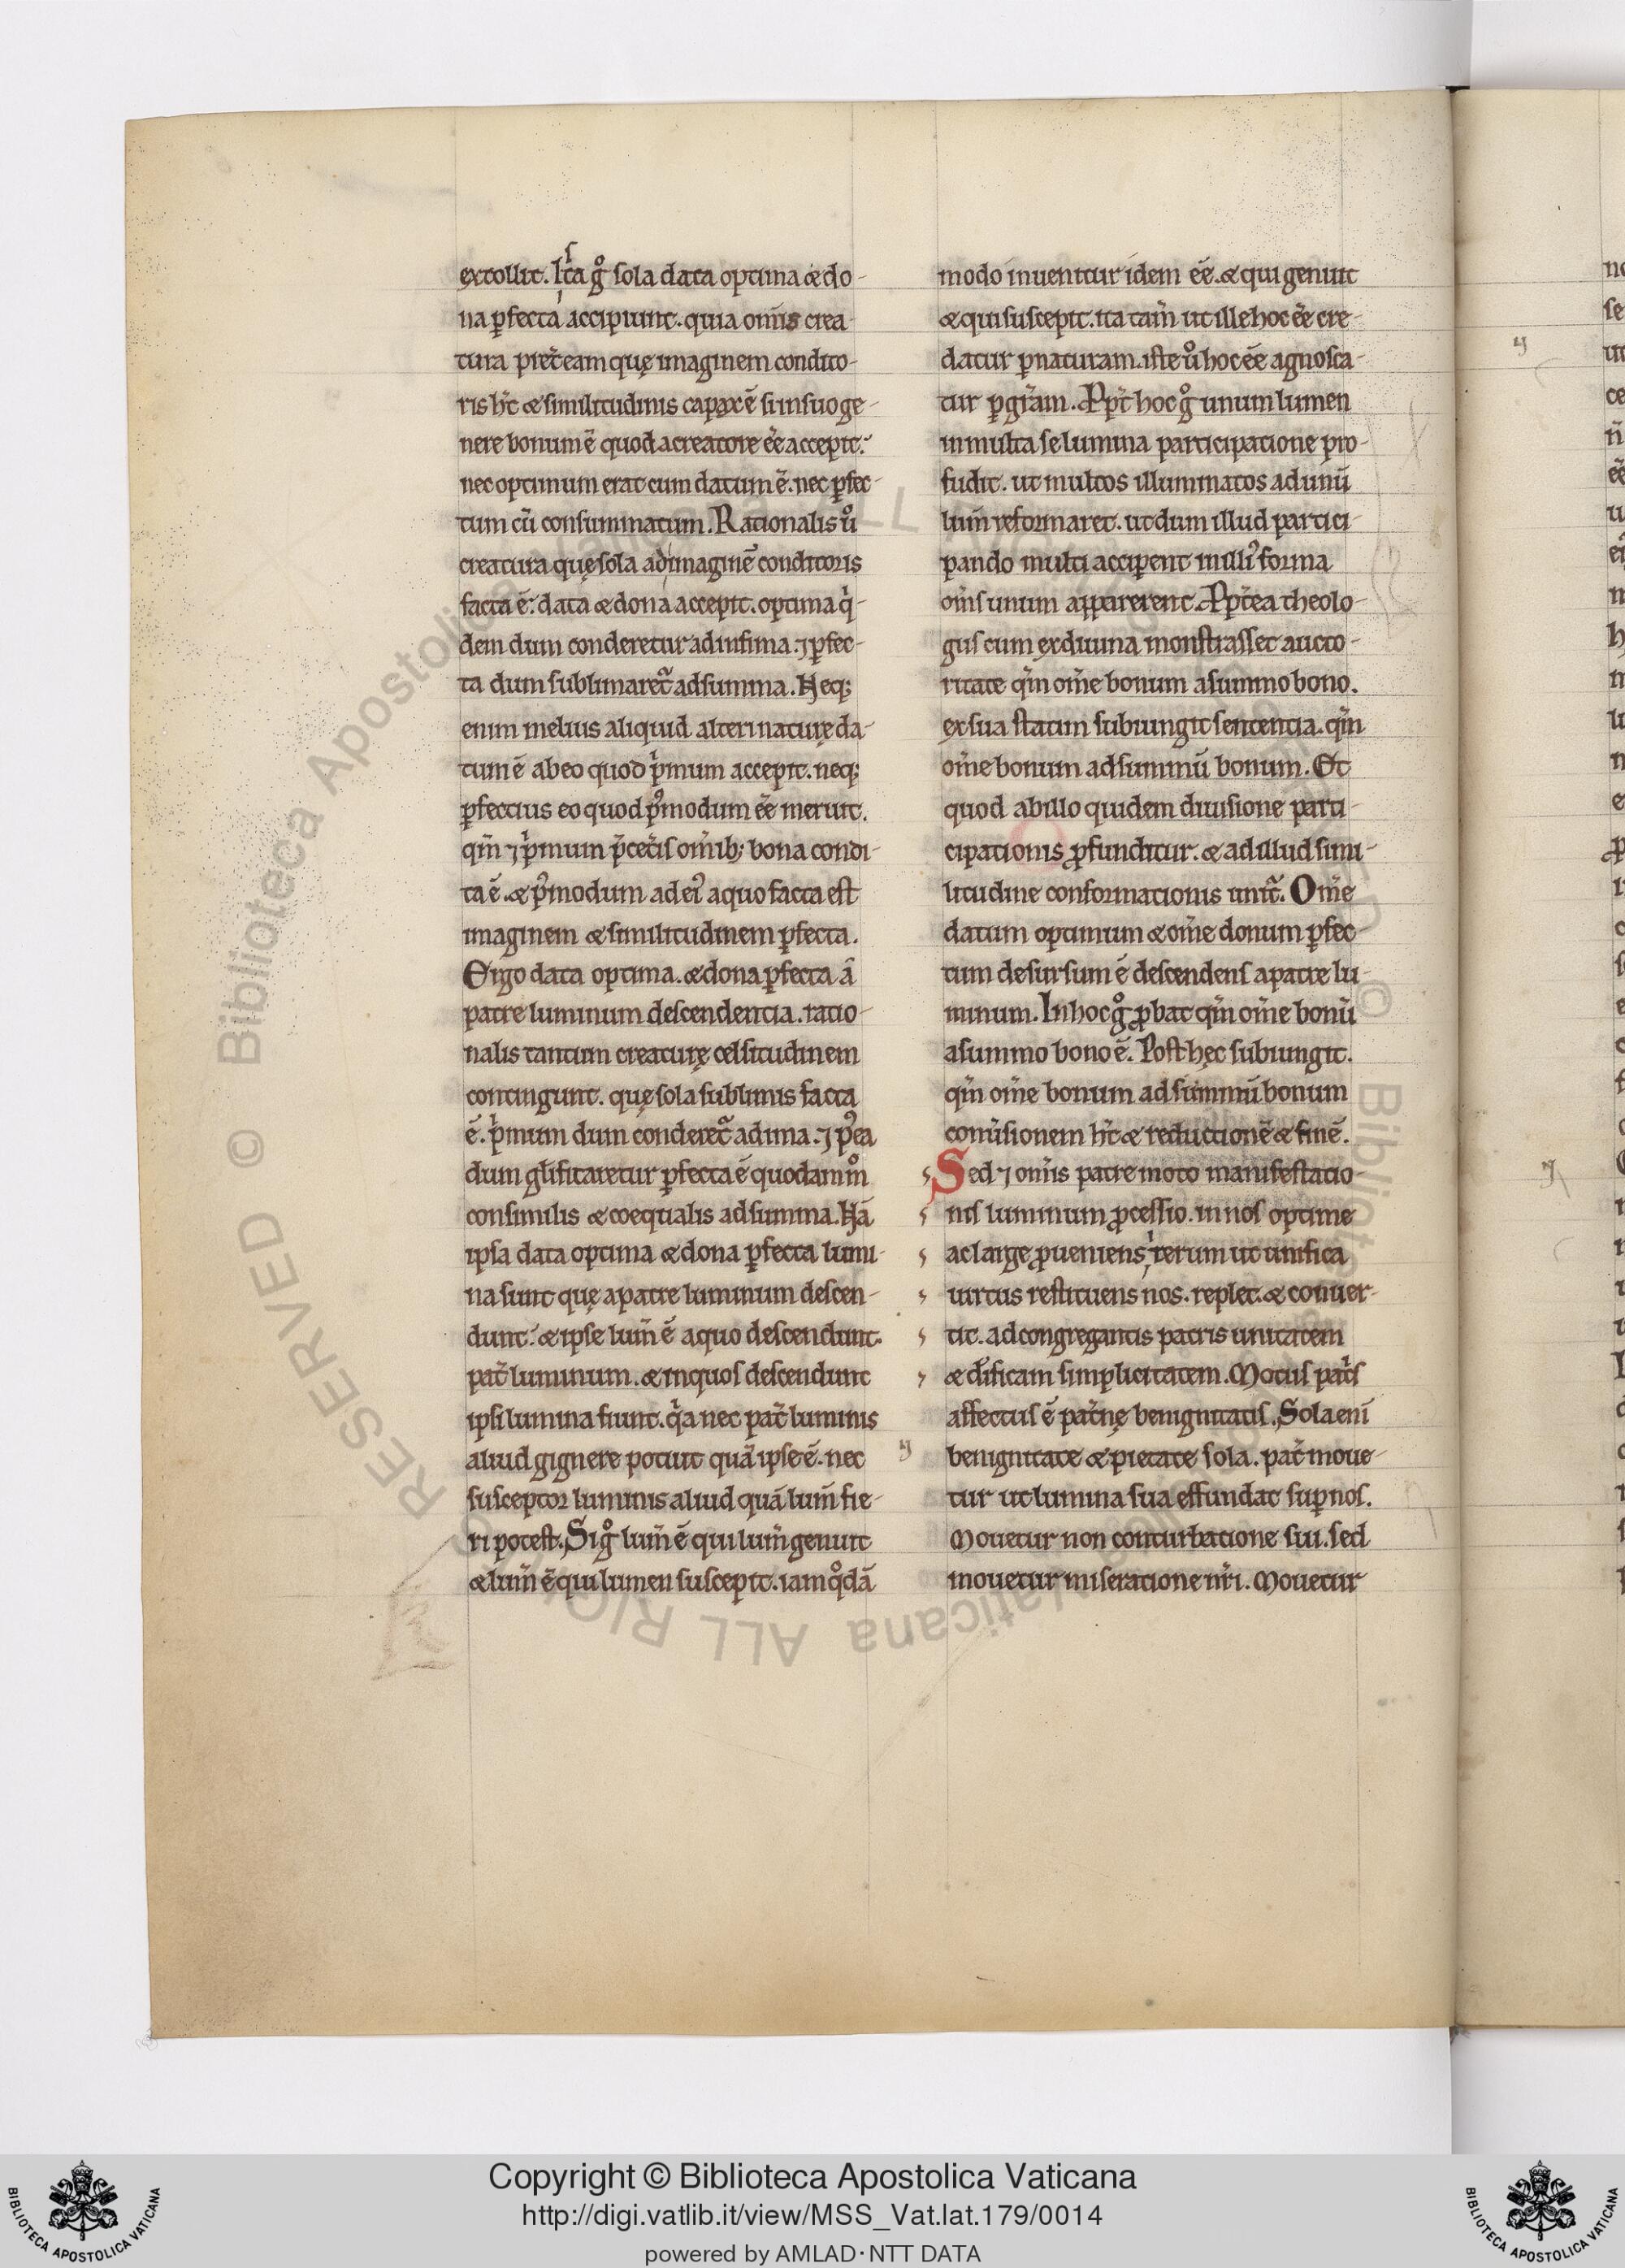 extollit. Iſta gͦ ſola data optima & do-
na ꝑfecta accipiunt. quia om̅is crea-
tura pret̅ eam quę imaginem condito-
ris h̅t & ſimilitudinis capax ē ſi in ſuo ge-
nere bonum ē quod a creatore eē̅ accepit.
nec optimum erat cum datum ē. nec ꝑfec-
tum cū conſummatum. Rationalis uͦ
creatura quę ſola ad imaginē conditoris
facta ē. data & dona accepit. optima qͥ-
dem dum conderetur ad infima. ⁊ ꝑfec-
ta dum ſublimaret᷑ ad ſumma. Neq;
enim melius aliquid alteri naturę da-
tum ē ab eo quod pͥmum accepit. neq;
ꝑfectius eo quod p᷒modum eē̅ meruit.
qm̅ ⁊ pͥmum p̅ cet̅is om̅ib; bona condi-
ta ē. & p᷒modum ad ei᷒ a quo facta eſt
imaginem & ſimilitudinem ꝑfecta.
Ergo data optima. & dona ꝑfecta a
patre luminum deſcendentia. ratio-
nalis tantum creaturę celſitudinem
contingunt. quę ſola ſublimis facta
ē. pͥmum dum conderet᷑ ad ima. ⁊ p᷒ea
dum gl̅ificaretur ꝑfecta ē quodam m̊
conſimilis & coequalis ad ſumma. Nā
ipſa data optima & dona ꝑfecta lumi-
na ſunt quę a patre luminum deſcen-
dunt. & ipſe lum̅ ē a quo deſcendunt.
pat̅ luminum. & in quoſ deſcendunt
ipſi lumina fiunt. qͥa nec pat̅ luminis
aliud gignere potuit quā ipſe ē. nec
ſuſceptor luminis aliud quā lum̅ fie-
ri poteſt. Si gͦ lum̅ ē qui lum̅ genuit
& lum̅ ē qui lumen ſuſcepit. iam qͦdā
modo inuenitur idem eē̅. & qui genuit
& qui ſuſcepit. ita tam̅ ut ille hoc eē̅ cre-
datur ꝑ naturam. iſte uͦ hoc eē̅ agnoſca-
tur ꝑ gr̅am. Ppt̅ hoc gͦ unum lumen
in multa ſe lumina participatione pro-
fudit. ut multos illuminatos ad unū
lum̅ reformaret. ut dum illud partici-
pando multi acciꝑent in illi᷒ forma
om̅ſ unum apparerent. Ppt̅ea theolo-
guſ cum ex diuina monſtraſſet aucto-
ritate qm̅ om̅e bonum a ſummo bono.
ex ſua ſtatim ſubiungit ſententia. qm̅
om̅e bonum ad ſummū bonum. Et
quod ab illo quidem diuiſione parti-
cipationis ꝓfunditur. & ad illud ſimi-
litudine conformationis unit᷑. Om̅e
datum optimum & om̅e donum ꝑfec-
tum deſurſum ē deſcendenſ a patre lu-
minum. In hoc gͦ ꝓbat qm̅ om̅e bonū
a ſummo bono ē. Poſt hęc ſubiungit.
qm̅ om̅e bonum ad ſummū bonum
conu̅ſionem h̅t & reductionē & finē.
Sed ⁊ om̅is patre moto manifeſtatio-
niſ luminum ꝓceſſio. in noſ optime
ac large ꝓueniens, iterum ut unifica
uirtus reſtituens nos. replet. & conuer-
tit. ad congregantis patris unitatem
& d̅ificam ſimplicitatem. Motuſ pat̅ſ
affectuſ ē pat̅nę benignitatiſ. Sola eni̅
benignitate & pietate ſola. pat̅ moue-
tur ut lumina ſua effundat ſuꝑ noſ.
Mouetur non conturbatione ſui. ſed
mouetur miſeratione nr̅i. Mouetur
Copyright © Biblioteca Apostolica Vaticana
http://digi.vatlib.it/view/MSS_Vat.lat.179/0014
powered by AMLAD·NTT DATA